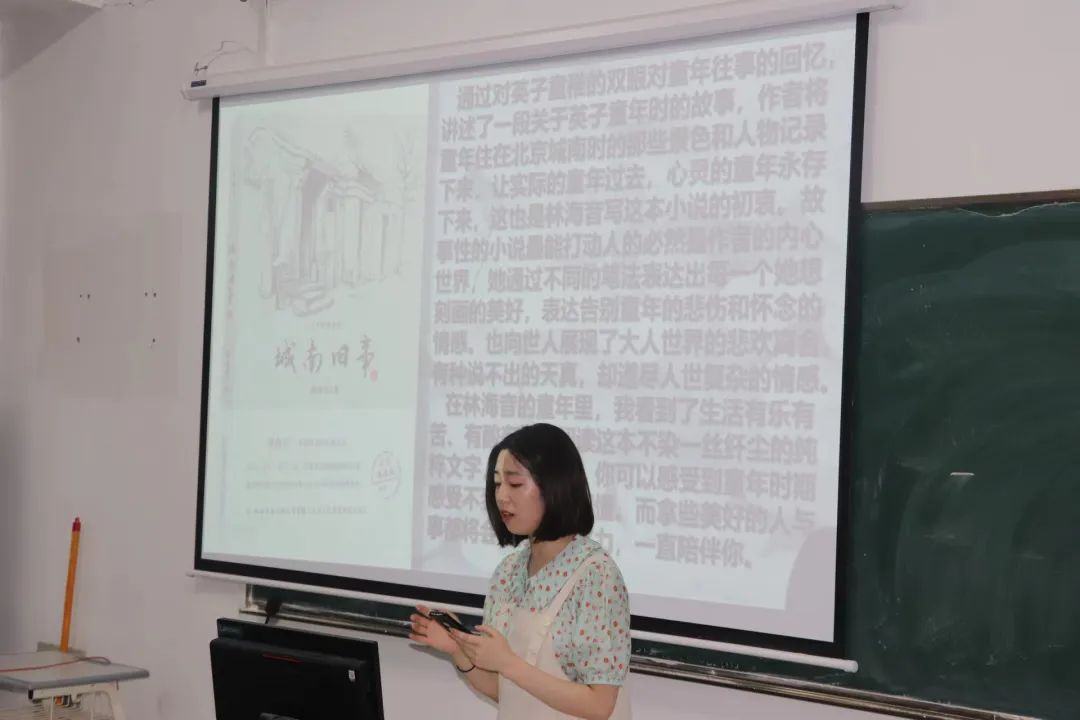 城南旧事
通过对英子童稚的双眼对童年往事的回忆，
讲述了一段关于英子童年时的故事，作者将
童年住在北京城南时的那些景色和人物记录
下来，让实际的童年过去，心灵的童年永存
下来，这也是林海音写这本小说的初衷。故
事性的小说最能打动人的必然是作者的内心
世界，她通过不同的笔法表达出每一个她想
刻画的美好，表达告别童年的悲伤和怀念的
情感。也向世人展现了大人世界的悲欢离合
有种说不出的天真，却道尽人世复杂的情感。
在林海音的童年里，我看到了生活有乐有
苦、有 读这本不染一丝纤尘的纯
粹文字 你可以感受到童年时期
感受不 而拿些美好的人与
事都将会 力，一直陪伴你。